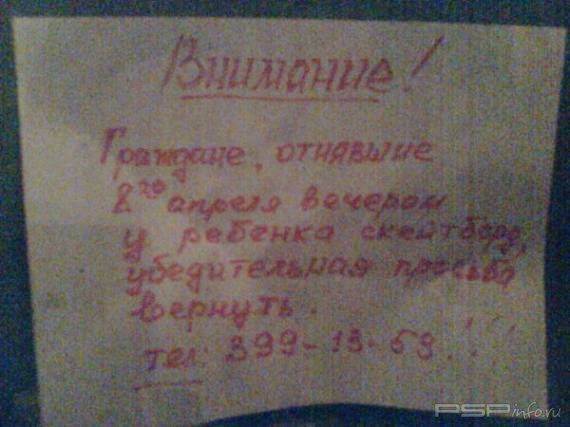 Внимание!
Граждане, отнявшие
8го апреля вечером
у ребенка скейтборд,
убедительная просьба
вернуть.
тел: 399-13-53
PSPinfo.ru